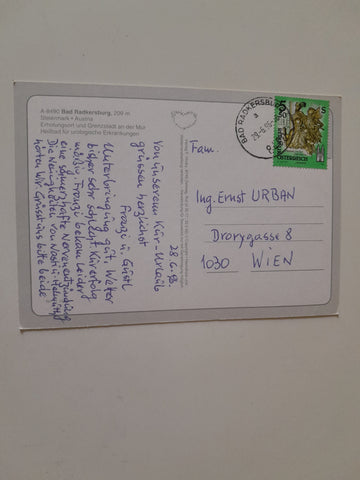 A-8490 Bad Radkersburg, 209 m
Steiermark • Austria
Erholungsort und Grenzstadt an der Mur
Heilbad für urologische Erkrankungen
28.6.93.
Von unserem Kur-Urlaub
grüssen herzlichst
Franzi u Gustl
Unterbringung gut, Wetter
bisher sehr schön. Kurerfolg
mäßig. Franzi bekam leider
eine schmerzhafte Nervenentzündung
Die Neuigkeiten von
hörten wir. Grüsst uns bitte beide
BAD RADKERSBURG
5
REPUBLIK
ÖSTERREICH
Fam.
Ing. Ernst URBAN
Drorygasse 8
1030 WIEN